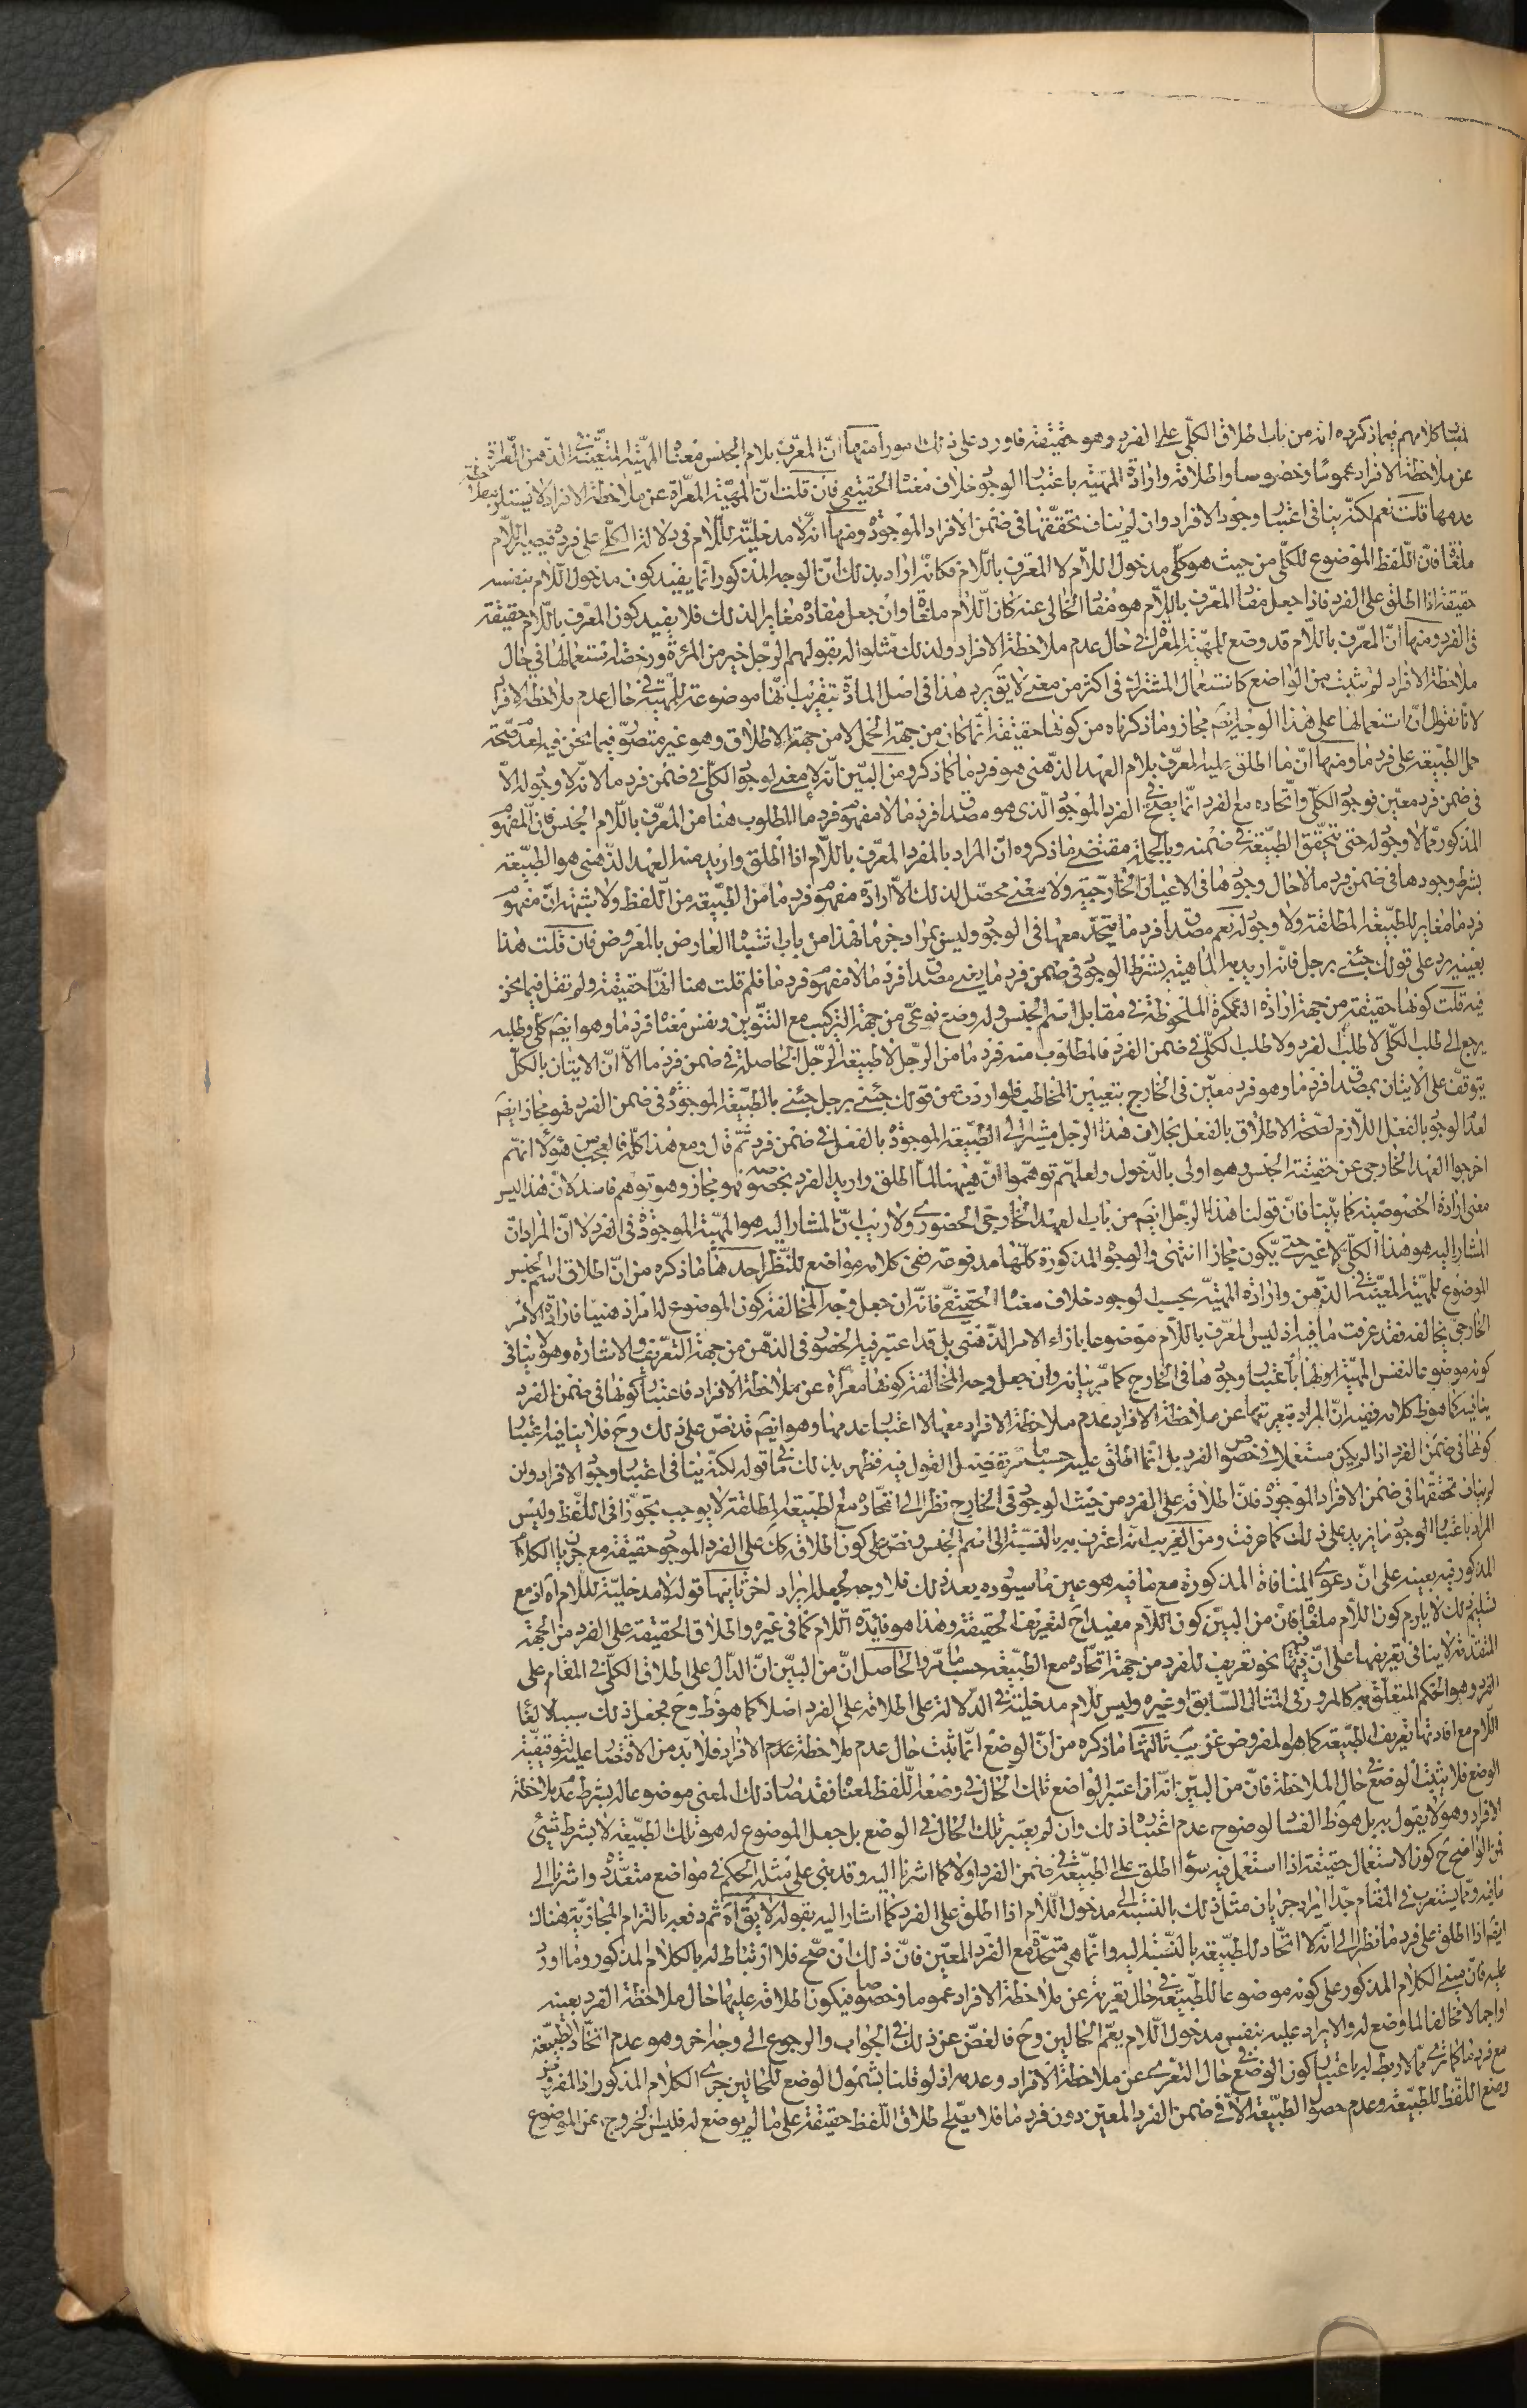 كلامهم فيما ذكروه انه من باب اطلاق الكلّى على الفرد وهو حقيقة فاورد على ذلك امورا منها انّ المعرّف بلام الجنس معناه المهيّة المتعيّنة فى الذّهن المعرّاة
عن ملاحظة الافراد عموما وخصوصا واطلاقه وارادة المهيّة باعتبار الوجود خلاف معناه الحقيقى فان قلت انّ المهيّة المعرّاة عن ملاحظة الافراد لا يستلزم ملاحظة
عدمها قلت نعم لكنّه ينافى اعتبار وجود الافراد وان لم يناف تحقّقها فى ضمن الافراد الموجودة ومنها انّه لا مدخليّة للّام فى دلالة الكلّى على فرده فيصير اللّام
ملغاة فانّ اللّفظ الموضوع للكلّى من حيث هو كلّى مدخول اللّام لا المعرّف باللّام فكانّه اراد بذلك انّ الوجه المذكور انّما يفيد كون مدخول اللّام بنفسه
حقيقة اذا اطلق على الفرد فاذا جعل مفاد المعرّف باللّام هو مفاد الخالى عنه كان اللّام ملغاة وان جعل مفاده مغايرا لذلك فلا يفيد كون المعرّف باللّام حقيقة
فى الفرد ومنها انّ المعرّف باللّام قد وضع للمهيّة المعرّاة فى حال عدم ملاحظة الافراد ولذلك مثّلوا له بقولهم الرّجل خير من المرئة ورخصة استعمالها فى حال
ملاحظة الافراد لم يثبت من الواضع كاستعمال المشترك فى اكثر من معنى لا يق يرد هذا فى اصل المادّة بتقريب انّها موضوعة للمهيّة فى حال عدم ملاحظة الافراد
لانّا نقول انّ استعمالها على هذا الوجه ايضا مجاز وما ذكرناه من كونها حقيقة انّما كان من جهة الحمل لا من جهة الاطلاق وهو غير متصوّر فيما نحن فيه لعدم صحّة
حمل الطّبيعة على فرد ما ومنها انّ ما اطلق عليه المعرّف بلام العهد الذّهنى هو فرد ما كما ذكروه ومن البيّن انّه لا معنى لوجود الكلّى فى ضمن فرد ما لانّه لا وجود له الّا
فى ضمن فرد معيّن فوجود الكلّى واتحاده مع الفرد انّما يصحّ فى الفرد الموجود الّذى هو مصداق فرد ما لا مفهوم فرد ما المطلوب هنا من المعرّف باللّام الجنس فانّ المفهوم
المذكور ممّا لا وجود له حتى يتحقّق الطّبيعة فى ضمنه وبالجملة مقتضى ما ذكروه انّ المراد بالمفرد المعرّف باللّام اذا اطلق واريد منه العهد الذّهنى هو الطّبيعة
بشرط وجودها فى ضمن فرد ما لا حال وجودها فى الاعيان الخارجيّة ولا معنى محصّل لذلك الّا ارادة مفهوم فرد ما من الطّبيعة من اللّفظ ولا شبهة انّ مفهوم
فرد ما مغاير للطّبيعة المطلقة ولا وجود له نعم مصداق فرد ما يتّحد معها فى الوجود وليس بمراد جزما فهذا من باب اشتباه العارض بالمعروض فان قلت هذا
بعينه يرد على قولك جئنى برجل فانّه اريد به الماهيّة بشرط الوجود فى ضمن فرد ما يعنى مصداق فرد ما لا مفهوم فرد ما فلم قلت هنا انّها حقيقة ولم تقل فيما نحن
فيه قلت كونها حقيقة من جهة ارادة النّكرة الملحوظة فى مقابل اسم الجنس وله وضع نوعىّ من جهة التركيب مع التنوين ونفس معناه فرد ما وهو ايضا كلّى وطلبه
يرجع الى طلب الكلّى لا طلب الفرد ولا طلب الكلّى فى ضمن الفرد فالمطلوب منه فرد ما من الرّجل لا طبيعة الرّجل الحاصلة فى ضمن فرد ما الّا انّ الاتيان بالكلّى
يتوقّف على الاتيان بمصداق فرد ما وهو فرد معيّن فى الخارج بتعيين المخاطب فلو اردت من قولك جئنى برجل جئنى بالطّبيعة الموجودة فى ضمن الفرد فهو مجاز ايضا
لعدم الوجود بالفعل اللّازم لصحّة الاطلاق بالفعل بخلاف هذا الرّجل مشيرا الى الطّبيعة الموجودة بالفعل فى ضمن فرد ثمّ قال ومع هذا كلّه فالعجب من هؤلاء انّهم
اخرجوا العهد الخارجى عن حقيقة الجنس وهو اولى بالدّخول ولعلّهم توهّموا انّ هيهنا لمّا اطلق واريد الفرد بخصوصه فهو مجاز وهو توهم فاسد لانّ هذا ليس
معنى ارادة الخصوصيّة كما بيّنا فانّ قولنا هذا الرّجل ايضا من باب العهد الخارجى الحضورى ولا ريب انّ المشار اليه هو المهيّة الموجودة فى الفرد لا انّ المراد انّ
المشار اليه هو هذا الكلّى لا غير حتى يكون مجازا انتهى والوجوه المذكورة كلّها مدفوعة وفى كلامه مواضع للنّظر احدها ما ذكره من انّ اطلاق اسم الجنس
الموضوع للمهيّة المعيّنة فى الذّهن وارادة المهيّة بحسب الوجود خلاف معناه الحقيقىّ فانّه ان جعل وجه المخالفة كون الموضوع له امرا ذهنيّا فارادة الامر
الخارجىّ يخالفه فقد عرفت ما فيه اذ ليس المعرّف باللّام موضوعا بازاء الامر الذّهنى بل قد اعتبر فيه الحضور فى الذّهن من جهة التّعريف والاشارة وهو لا ينافى
كونه موضوعا لنفس المهيّة ولها باعتبار وجودها فى الخارج كما مرّ بيانه وان جعل وجه المخالفة كونها معرّاة عن ملاحظة الافراد فاعتبار كونها فى ضمن الفرد
ينافيه كما هو ظ كلامه ففيه انّ المراد بتعريتها عن ملاحظة الافراد عدم ملاحظة الافراد معها لا اعتبار عدمها وهو ايضا قد نصّ على ذلك وح فلا ينافيه اعتبار
كونها فى ضمن الفرد اذا لم يكن مستعملا فى خصوص الفرد بل انّما اطلق عليه حسبما مرّ تفصيل القول فيه فظهر بذلك ما فى قوله لكنّه ينافى اعتبار وجود الافراد وان
لم يناف تحقّقها فى ضمن الافراد الموجودة فانّ اطلاقه على الفرد من حيث الوجود فى الخارج نظرا الى اتّحاده مع الطبيعة المطلقة لا يوجب تجوّزا فى اللّفظ وليس
المراد باعتبار الوجود ما يزيد على ذلك كما عرفت ومن الغريب انّه اعترف به بالنّسبة الى اسم الجنس ونصّ على كون اطلاقه كك على الفرد الموجود حقيقة مع جريان الكلام
المذكور فيه بعينه على انّ دعوى المنافاة المذكورة مع ما فيه هو عين ما سيورده بعد ذلك فلا وجه لجعله ايرادا اخر ثانيها قوله لا مدخليّة للّام آه اذ مع
تسليم ذلك لا يلزم كون اللّام ملغاة فانّ من البيّن كون اللّام مفيدا ح لتعريف الحقيقة وهذا هو فائدة اللّام كما فى غيره واطلاق الحقيقة على الفرد من الجهة
المتقدّمة لا ينافى تعريفها على انّ فيها نحو تعريف للفرد من جهة اتّحاده مع الطّبيعة حسبما مرّ والحاصل انّ من البيّن انّ الدّال على اطلاق الكلّى فى المقام على
الفرد هو الحكم المتعلّق به كالمرور فى المثال السّابق او غيره وليس للّام مدخليّة فى الدّلالة على اطلاقه على الفرد اصلا كما هو ظ وح فجعل ذلك سببا لالغاء
اللّام مع افادتها تعريف الطّبيعة كما هو المفروض غريب ثالثها ما ذكره من انّ الوضع انّما ثبت حال عدم ملاحظة عدم الافراد فلا بدّ من الاقتصار عليه لتوقيفيّة
الوضع فلا يثبت الوضع فى حال الملاحظة فانّ من البيّن انّه ان اعتبر الواضع تلك الحال فى وضعه اللّفظ لمعناه فقد صار ذلك المعنى موضوعا له بشرط عدم ملاحظة
الافراد وهو لا يقول به بل هو ظ الفساد لوضوح عدم اعتباره ذلك وان لم يعتبر تلك الحال فى الوضع بل جعل الموضوع له هو تلك الطّبيعة لا بشرط شيئ
فمن الواضح ح كون الاستعمال حقيقة اذا استعمل فيه سواء اطلق على الطّبيعة فى ضمن الفرد او لا كما اشرنا اليه وقد بنى على مثله الحكم فى مواضع متعدّدة واشرنا الى
ما فيه وممّا يستغرب فى المقام جدّا ايراد جريان مثل ذلك بالنّسبة الى مدخول اللّام اذا اطلق على الفرد كما اشار اليه بقوله لا يق آه ثم دفعه بالتزام المجازيّة هناك
ايضا اذا اطلق على فرد ما نظرا الى انّه لا اتّحاد للطّبيعة بالنّسبة اليه وانّما هى متّحدة مع الفرد المعيّن فانّ ذلك ان صحّ فلا ارتباط له بالكلام المذكور وما اورد
عليه فانّ مبنى الكلام المذكور على كونه موضوعا للطّبيعة فى حال تعريته عن ملاحظة الافراد عموما وخصوصا فيكون اطلاقه عليها حال ملاحظة الفرد بعينه
او اجمالا مخالفا لما وضع له والايراد عليه بنفس مدخول اللّام يعمّ الحالين وح فالغضّ عن ذلك فى الجواب والرجوع الى وجه اخر وهو عدم اتّحاد الطبيعة
مع فرد ما كما ترى ممّا لا ربط له باعتبار كون الوضع فى حال التعرّى عن ملاحظة الافراد وعدمه اذ لو قلنا بشمول الوضع للحالين جرى الكلام المذكور اذ المفروض
وضع اللّفظ للطّبيعة وعدم حصول الطّبيعة الّا فى ضمن الفرد المعيّن دون فرد ما فلا يصحّ اطلاق اللّفظ حقيقة على ما لم يوضع له فليس الخروج عن الموضوع